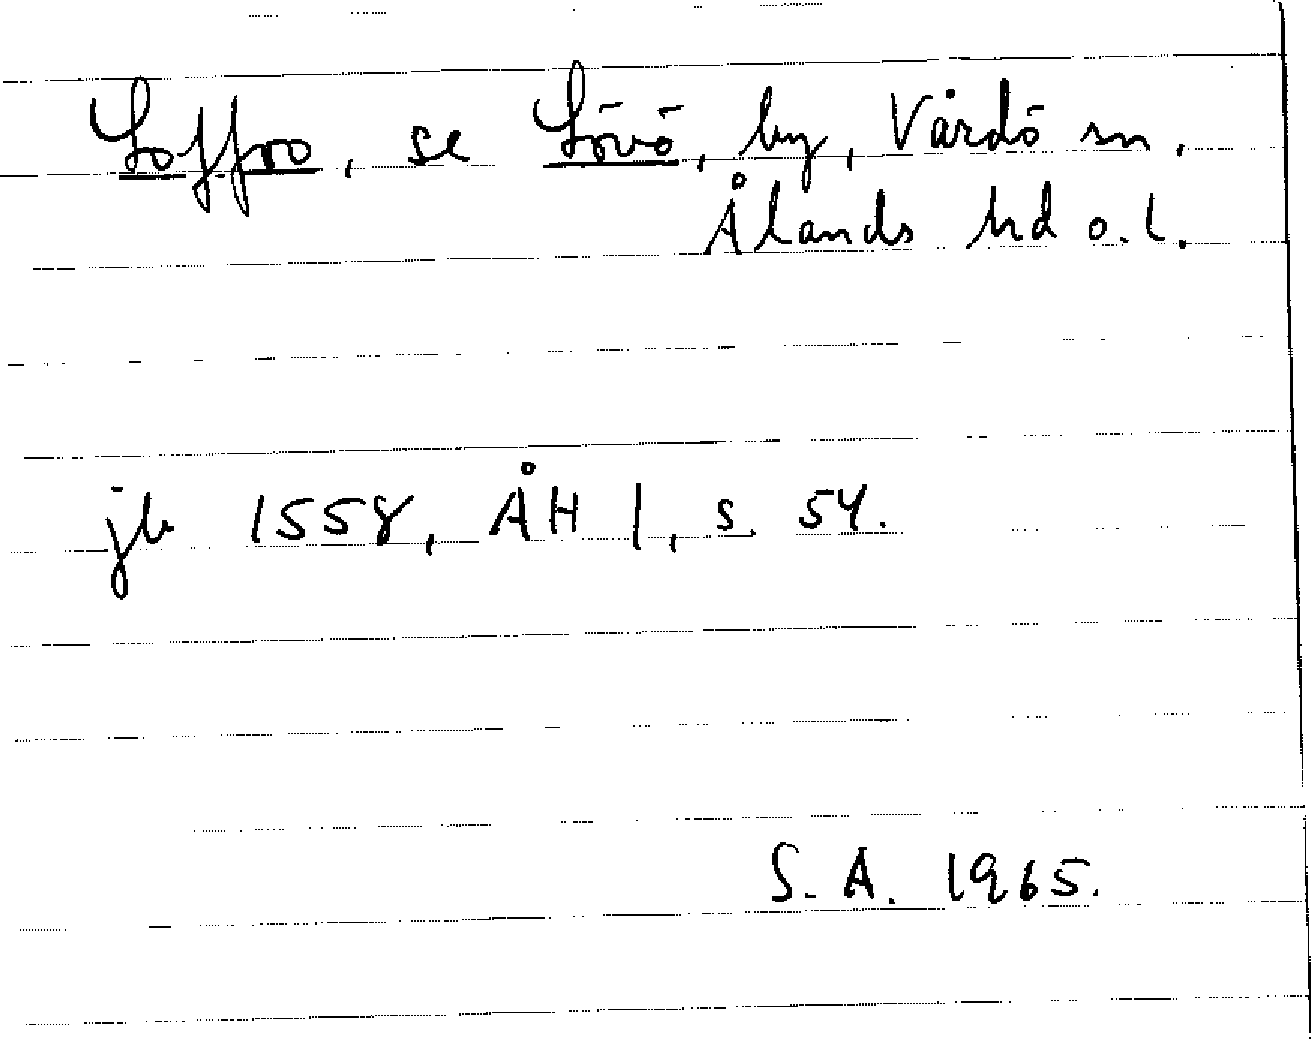 Loffroo, se Lövö, by, Vårdö sn,
Ålands hd o. l.
jb 1558, ÅH I, s. 54.
S. A. 1965.